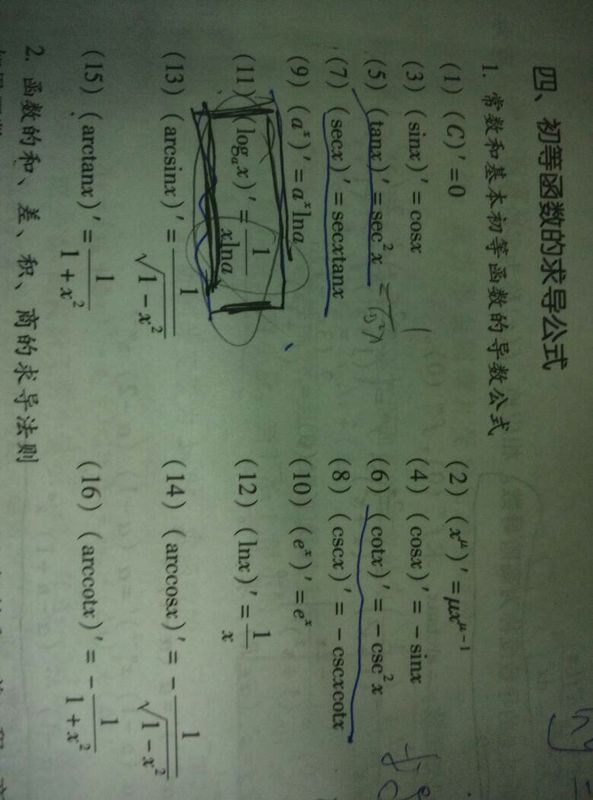 四、初等函数的求导公式
1. 常数和基本初等函数的导数公式
(1) (C)′=0
(2) (x^μ)′=μx^(μ-1)
(3) (sinx)′=cosx
(4) (cosx)′=-sinx
(5) (tanx)′=sec²x
(6) (cotx)′=-csc²x
(7) (secx)′=secxtanx
(8) (cscx)′=-cscxcotx
(9) (a^x)′=a^x lna
(10) (e^x)′=e^x
(11) (log_a x)′=1/(xlna)
(12) (lnx)′=1/x
(13) (arcsinx)′=1/√(1-x²)
(14) (arccosx)′=-1/√(1-x²)
(15) (arctanx)′=1/(1+x²)
(16) (arccotx)′=-1/(1+x²)
2. 函数的和、差、积、商的求导法则